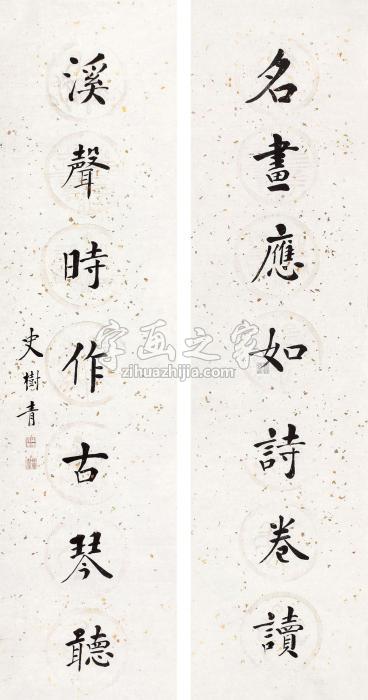 名畫應如詩卷讀
溪聲時作古琴聽
史樹青
字画之家
zihuazhijia.com